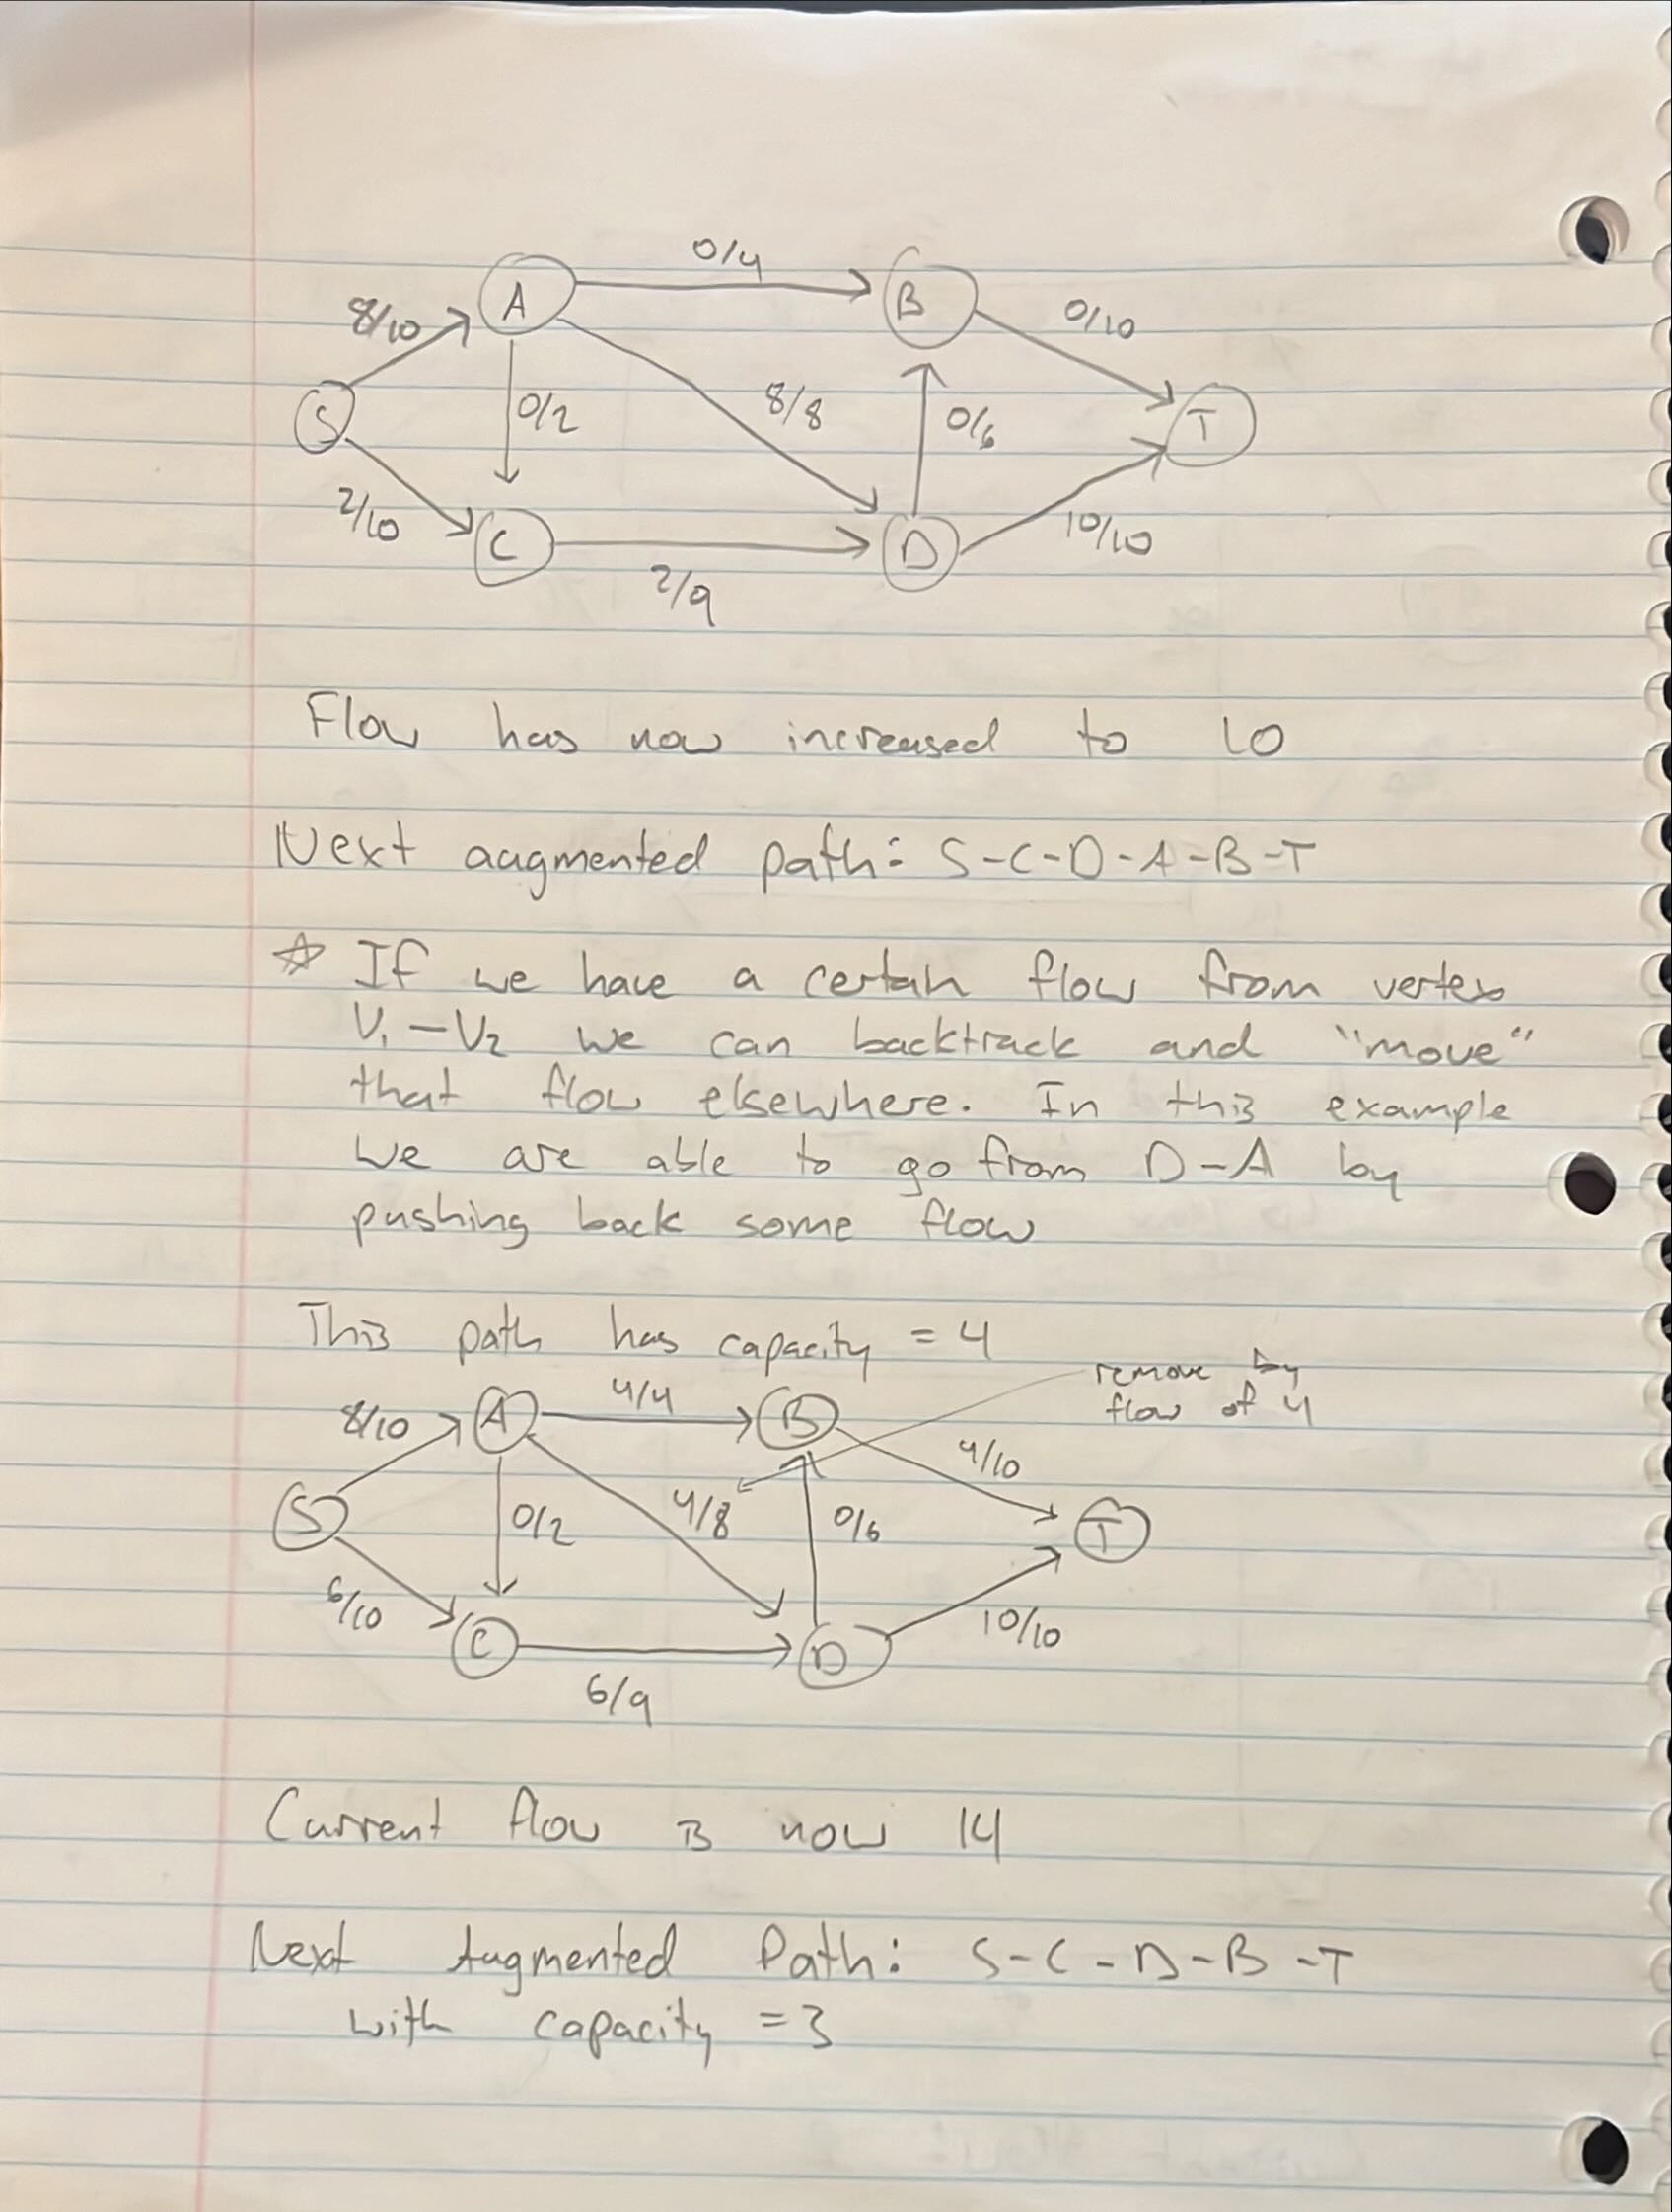 0/4
A
B
8/10
0/10
S
0/2
8/8
0/6
T
2/10
C
D
10/10
2/9
Flow has now increased to 10
Next augmented path: S-C-D-A-B-T
☆ If we have a certain flow from vertex
V₁ - V₂ we can backtrack and "move"
that flow elsewhere. In this example
we are able to go from D-A by
pushing back some flow
This path has capacity = 4
remove by
flow of 4
4/4
8/10
A
B
4/10
S
0/2
4/8
0/6
T
6/10
C
D
10/10
6/9
Current flow is now 14
Next Augmented Path: S-C-D-B-T
with capacity = 3